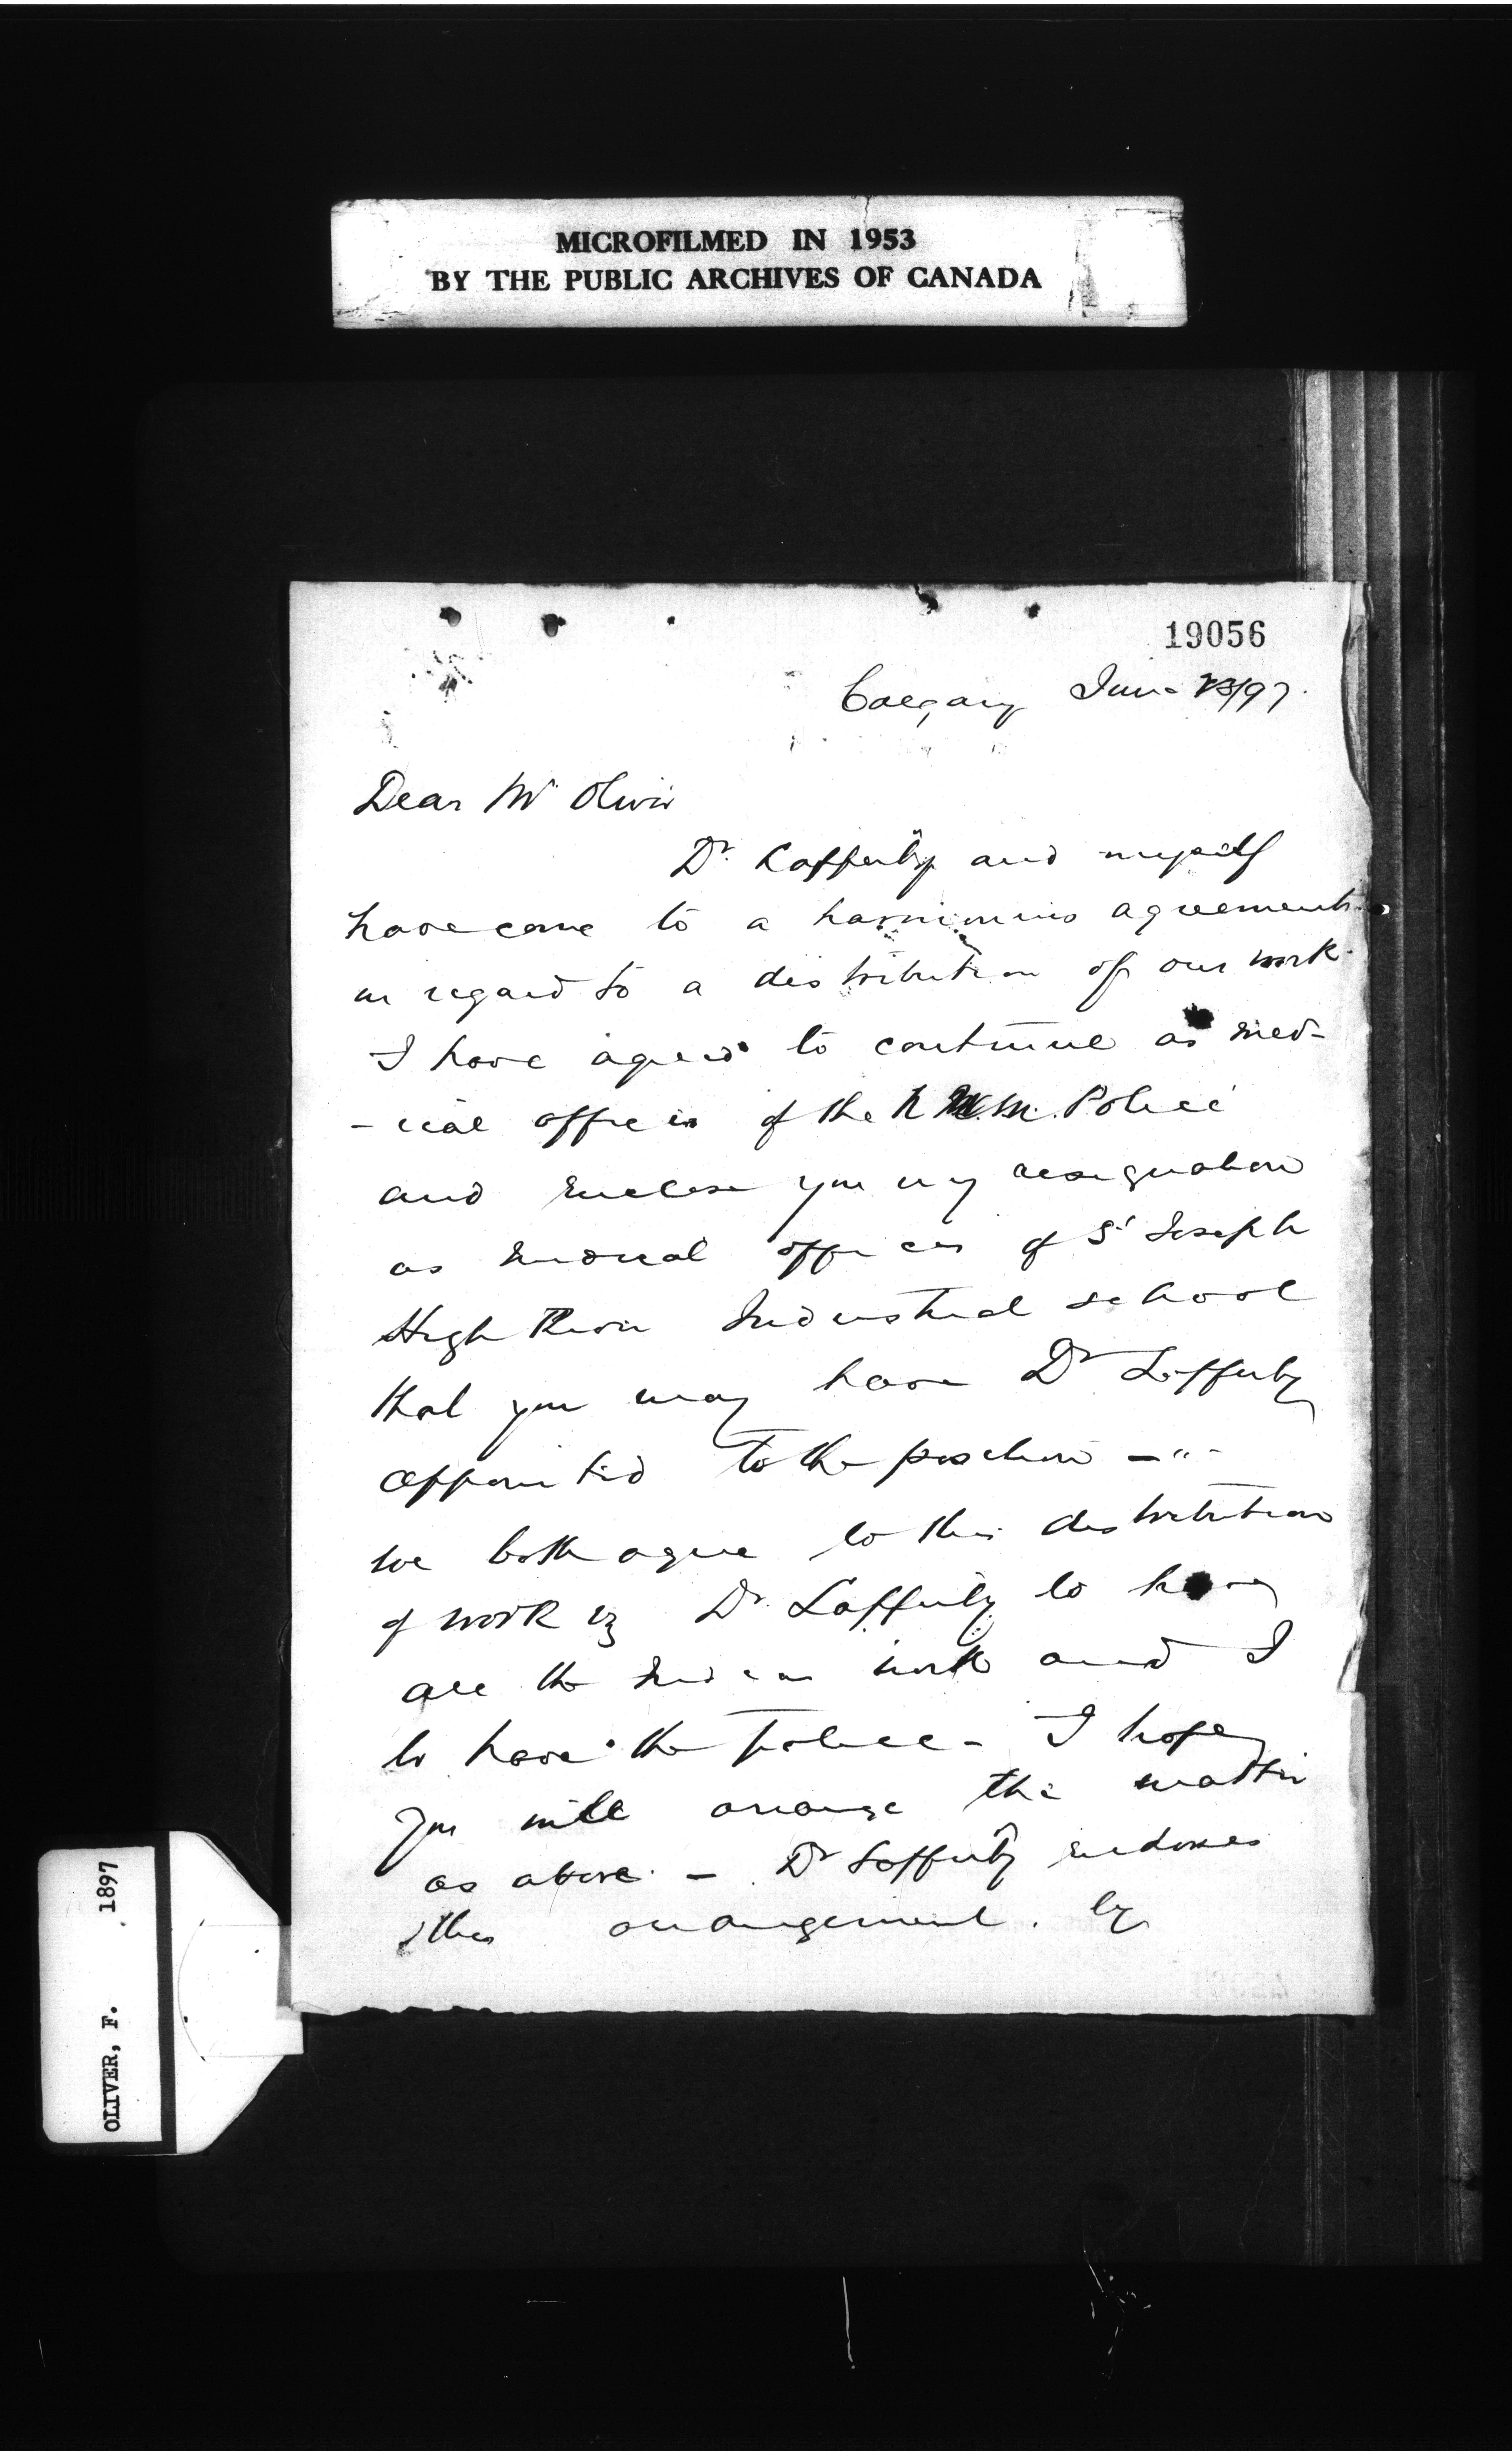 MICROFILMED IN 1953
BY THE PUBLIC ARCHIVES OF CANADA
19056
Calgary June /97.
Dear Mr Oliver
Dr. Lafferty and myself
have come to a harmonious agreement
in regard to a distribution of our work.
I have agreed to continue as med-
-ical officer of the N.W.M. Police
and enclose you my resignation
as medical officer of St Joseph
High River Industrial school
that you may have Dr Lafferty
appointed to the position -"-
we both agree to this distribution
of work viz Dr. Lafferty to have
all the Indian work and I
to have the police - I hope
you will arrange the matter
as above - Dr Lafferty endorses
this arrangement. by
OLIVER, F. 1897